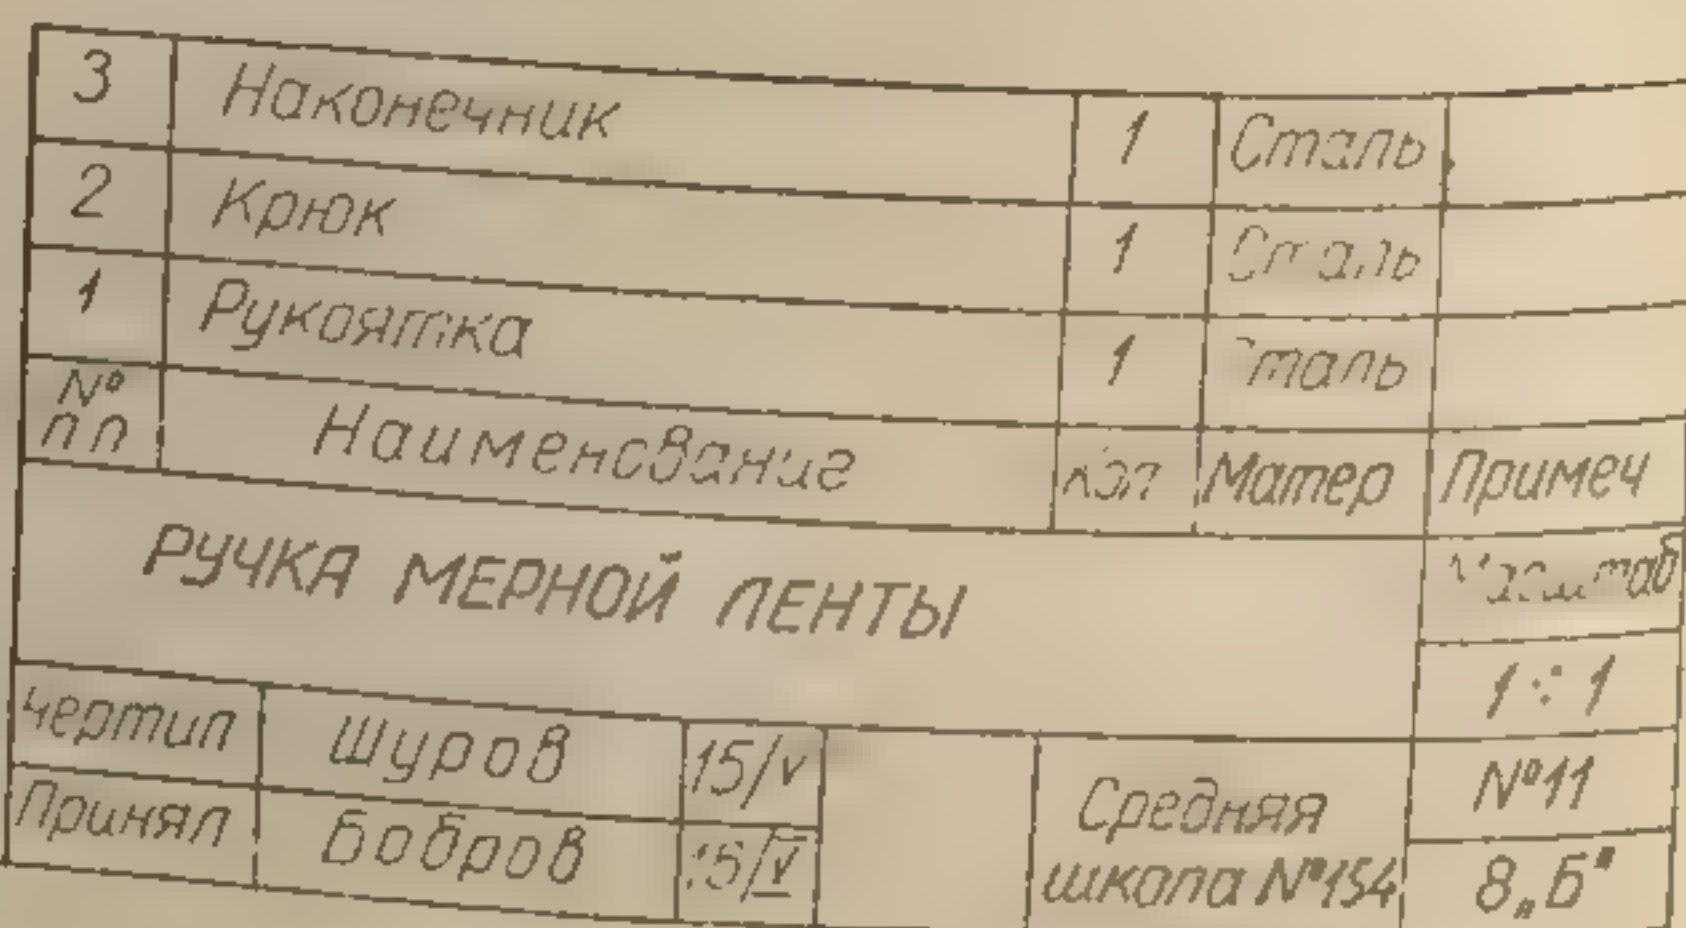 3 Наконечник 1 Сталь
2 Крюк 1 Сталь
1 Рукоятка 1 Сталь
№ пп Наименование Кол Матер Примеч
РУЧКА МЕРНОЙ ЛЕНТЫ
Масштаб
1:1
Чертил Шуров 15/V
Принял Бобров 15/V
Средняя
школа №154
№11
8„Б"